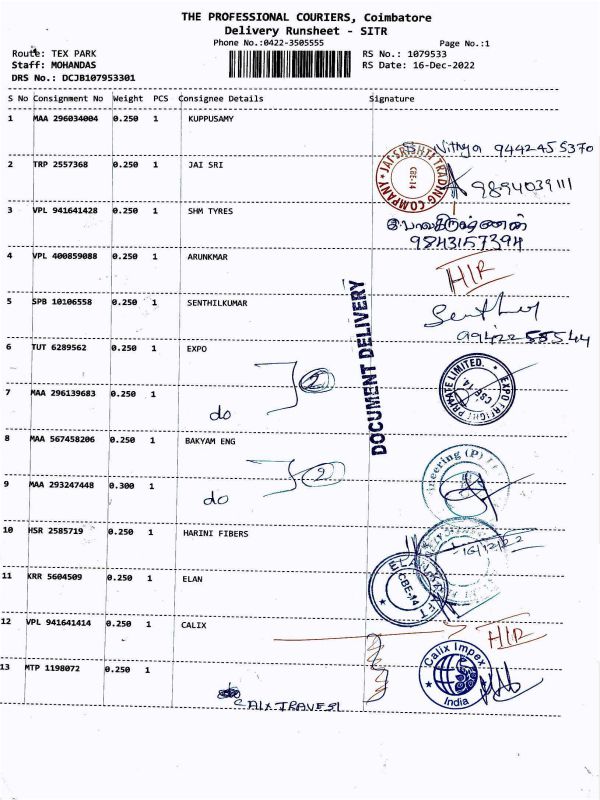 THE PROFESSIONAL COURIERS, Coimbatore
Delivery Runsheet - SITR
Phone No.:0422-3505555 Page No.:1
Route: TEX PARK RS No.: 1079533
Staff: MOHANDAS RS Date: 16-Dec-2022
DRS No.: DCJB107953301
S No Consignment No Weight PCS Consignee Details Signature
1 MAA 296034004 0.250 1 KUPPUSAMY
S. Vithya 9442455370
2 TRP 2557368 0.250 1 JAI SRI
JAI SRISHTI TRADING COMPANY CBE-14
9894039111
3 VPL 941641428 0.250 1 SHM TYRES
9843157394
4 VPL 400859088 0.250 1 ARUNKMAR
HIR
5 SPB 10106558 0.250 1 SENTHILKUMAR
9942255544
DOCUMENT DELIVERY
6 TUT 6289562 0.250 1 EXPO
2
EXPO FREIGHT PRIVATE LIMITED. CBE-14
7 MAA 296139683 0.250 1
do
8 MAA 567458206 0.250 1 BAKYAM ENG
2
9 MAA 293247448 0.300 1
do
10 HSR 2585719 0.250 1 HARINI FIBERS
16/12/22
11 KRR 5604509 0.250 1 ELAN
CBE-14
12 VPL 941641414 0.250 1 CALIX
HIR
13 MTP 1198072 0.250 1
Calix Impex India